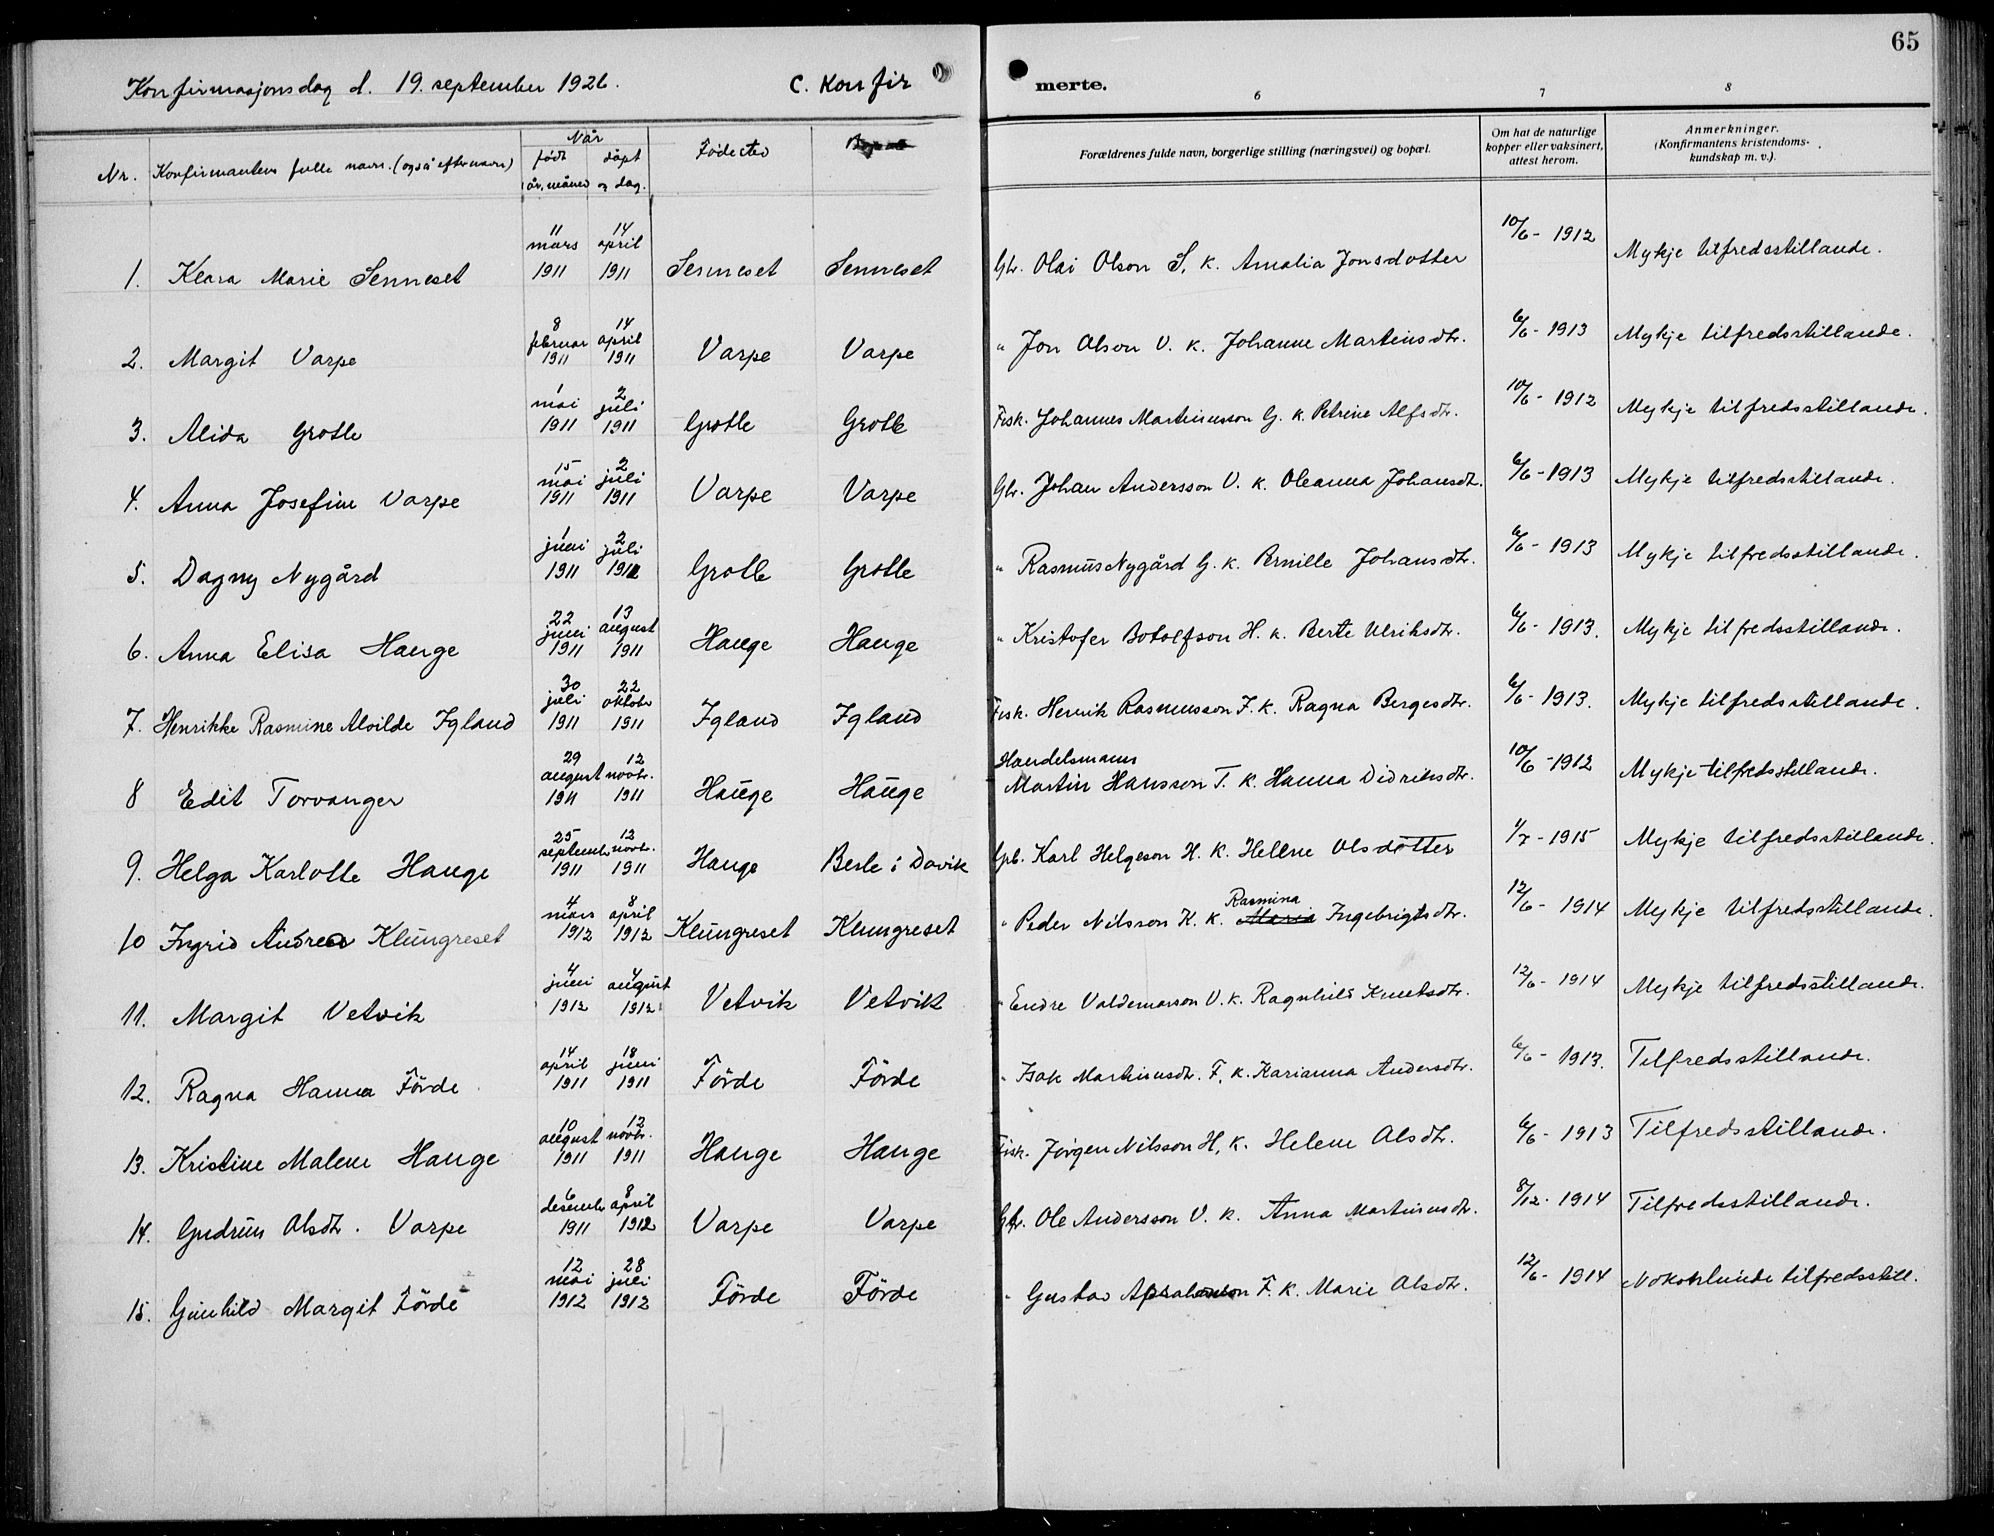 65
Konfirmasjonsdag d. 19. september 1926. C. Konfir merte.
6 7 8
Nr. Konfirmantens fulle navn. (også efternavn) Når født døpt år, måned og dag. Fødested Forældrenes fulde navn, borgerlige stilling (næringsvei) og bopæl. Om hat de naturlige kopper eller vaksinert, attest herom. Anmerkninger. (Konfirmantens kristendoms-kundskap m. v.).
1. Klara Marie Senneset 11 mars 1911 14 april 1911 Senneset Senneset Gbr. Olai Olson S. k. Amalia Jonsdotter 10/6 - 1912 Mykje tilfredsstillande.
2. Margit Varpe 8 februar 1911 14 april 1911 Varpe Varpe " Jon Olson V. k. Johanne Martinsdtr. 6/6 - 1913 Mykje tilfredsstillande.
3. Alida Grotle 1 mai 1911 2 juli 1911 Grotle Grotle Fisk. Johannes Martinusson G. k. Petrine Alfsdtr. 10/6 - 1912 Mykje tilfredsstillande.
4. Anna Josefine Varpe 15 mai 1911 2 juli 1911 Varpe Varpe Gbr. Johan Andersson V. k. Oleanna Johansdtr. 6/6 - 1913 Mykje tilfredsstillande.
5. Dagny Nygård 1 juni 1911 2 juli 1911 Grotle Grotle " Rasmus Nygård G. k. Pernille Johansdtr. 6/6 - 1913 Mykje tilfredsstillande.
6. Anna Elisa Hauge 22 juni 1911 13 august 1911 Hauge Hauge " Kristofer Botolfson H. k. Berte Ulriksdtr. 6/6 - 1913. Mykje tilfredsstillande.
7. Henrikke Rasmine Alvilde Igland 30 juli 1911 22 oktobr 1911 Igland Igland Fisk. Henrik Rasmusson I. k. Ragna Bergesdtr. 6/6 - 1913. Mykje tilfredsstillande.
8 Edit Torvanger 29 august 1911 12 novbr. 1911 Hauge Hauge Handelsmann Martin Hansson T. k. Hanna Didriksdtr. 10/6 - 1912 Mykje tilfredsstillande.
9. Helga Karlotte Hauge 25 septembr 1911 12 novbr. 1911 Hauge Berle i Davik Gbr. Karl Helgeson H. k. Helene Olsdotter 1/7 - 1915 Mykje tilfredsstillande.
10 Ingrid Andrea Klungreset 4 mars 1912 8 april 1912 Klungreset Klungreset " Peder Nilsson K. k. Maria Rasmina Ingebrigtsdtr. 12/6 - 1914 Mykje tilfredsstillande.
11. Margit Vetvik 4 juni 1912 4 august 1912 Vetvik Vetvik " Endre Valdemarson V. k. Ragnhild Knutsdtr. 12/6 - 1914 Mykje tilfredsstillande.
12. Ragna Hanna Førde 14 april 1911 18 juni 1911 Førde Førde " Isak Martinusdtr. F. k. Karianna Andersdtr. 6/6 - 1913. Tilfredsstillande.
13. Kristine Malene Hauge 10 august 1911 12 novbr. 1911 Hauge Hauge Fisk. Jørgen Nilsson H. k. Helene Olsdtr. 6/6 - 1913 Tilfredsstillande.
14. Gudrun Olsdtr. Varpe 6 desembr 1911 8 april 1912 Varpe Varpe Gbr. Ole Andersson V. k. Anna Martinusdtr. 8/12 - 1914 Tilfredsstillande.
15. Gunhild Margit Førde 12 mai 1912 28 juli 1912 Førde Førde " Gustav F. k. Marie Olsdtr. 12/6 - 1914 Nokolunde tilfredsstill.